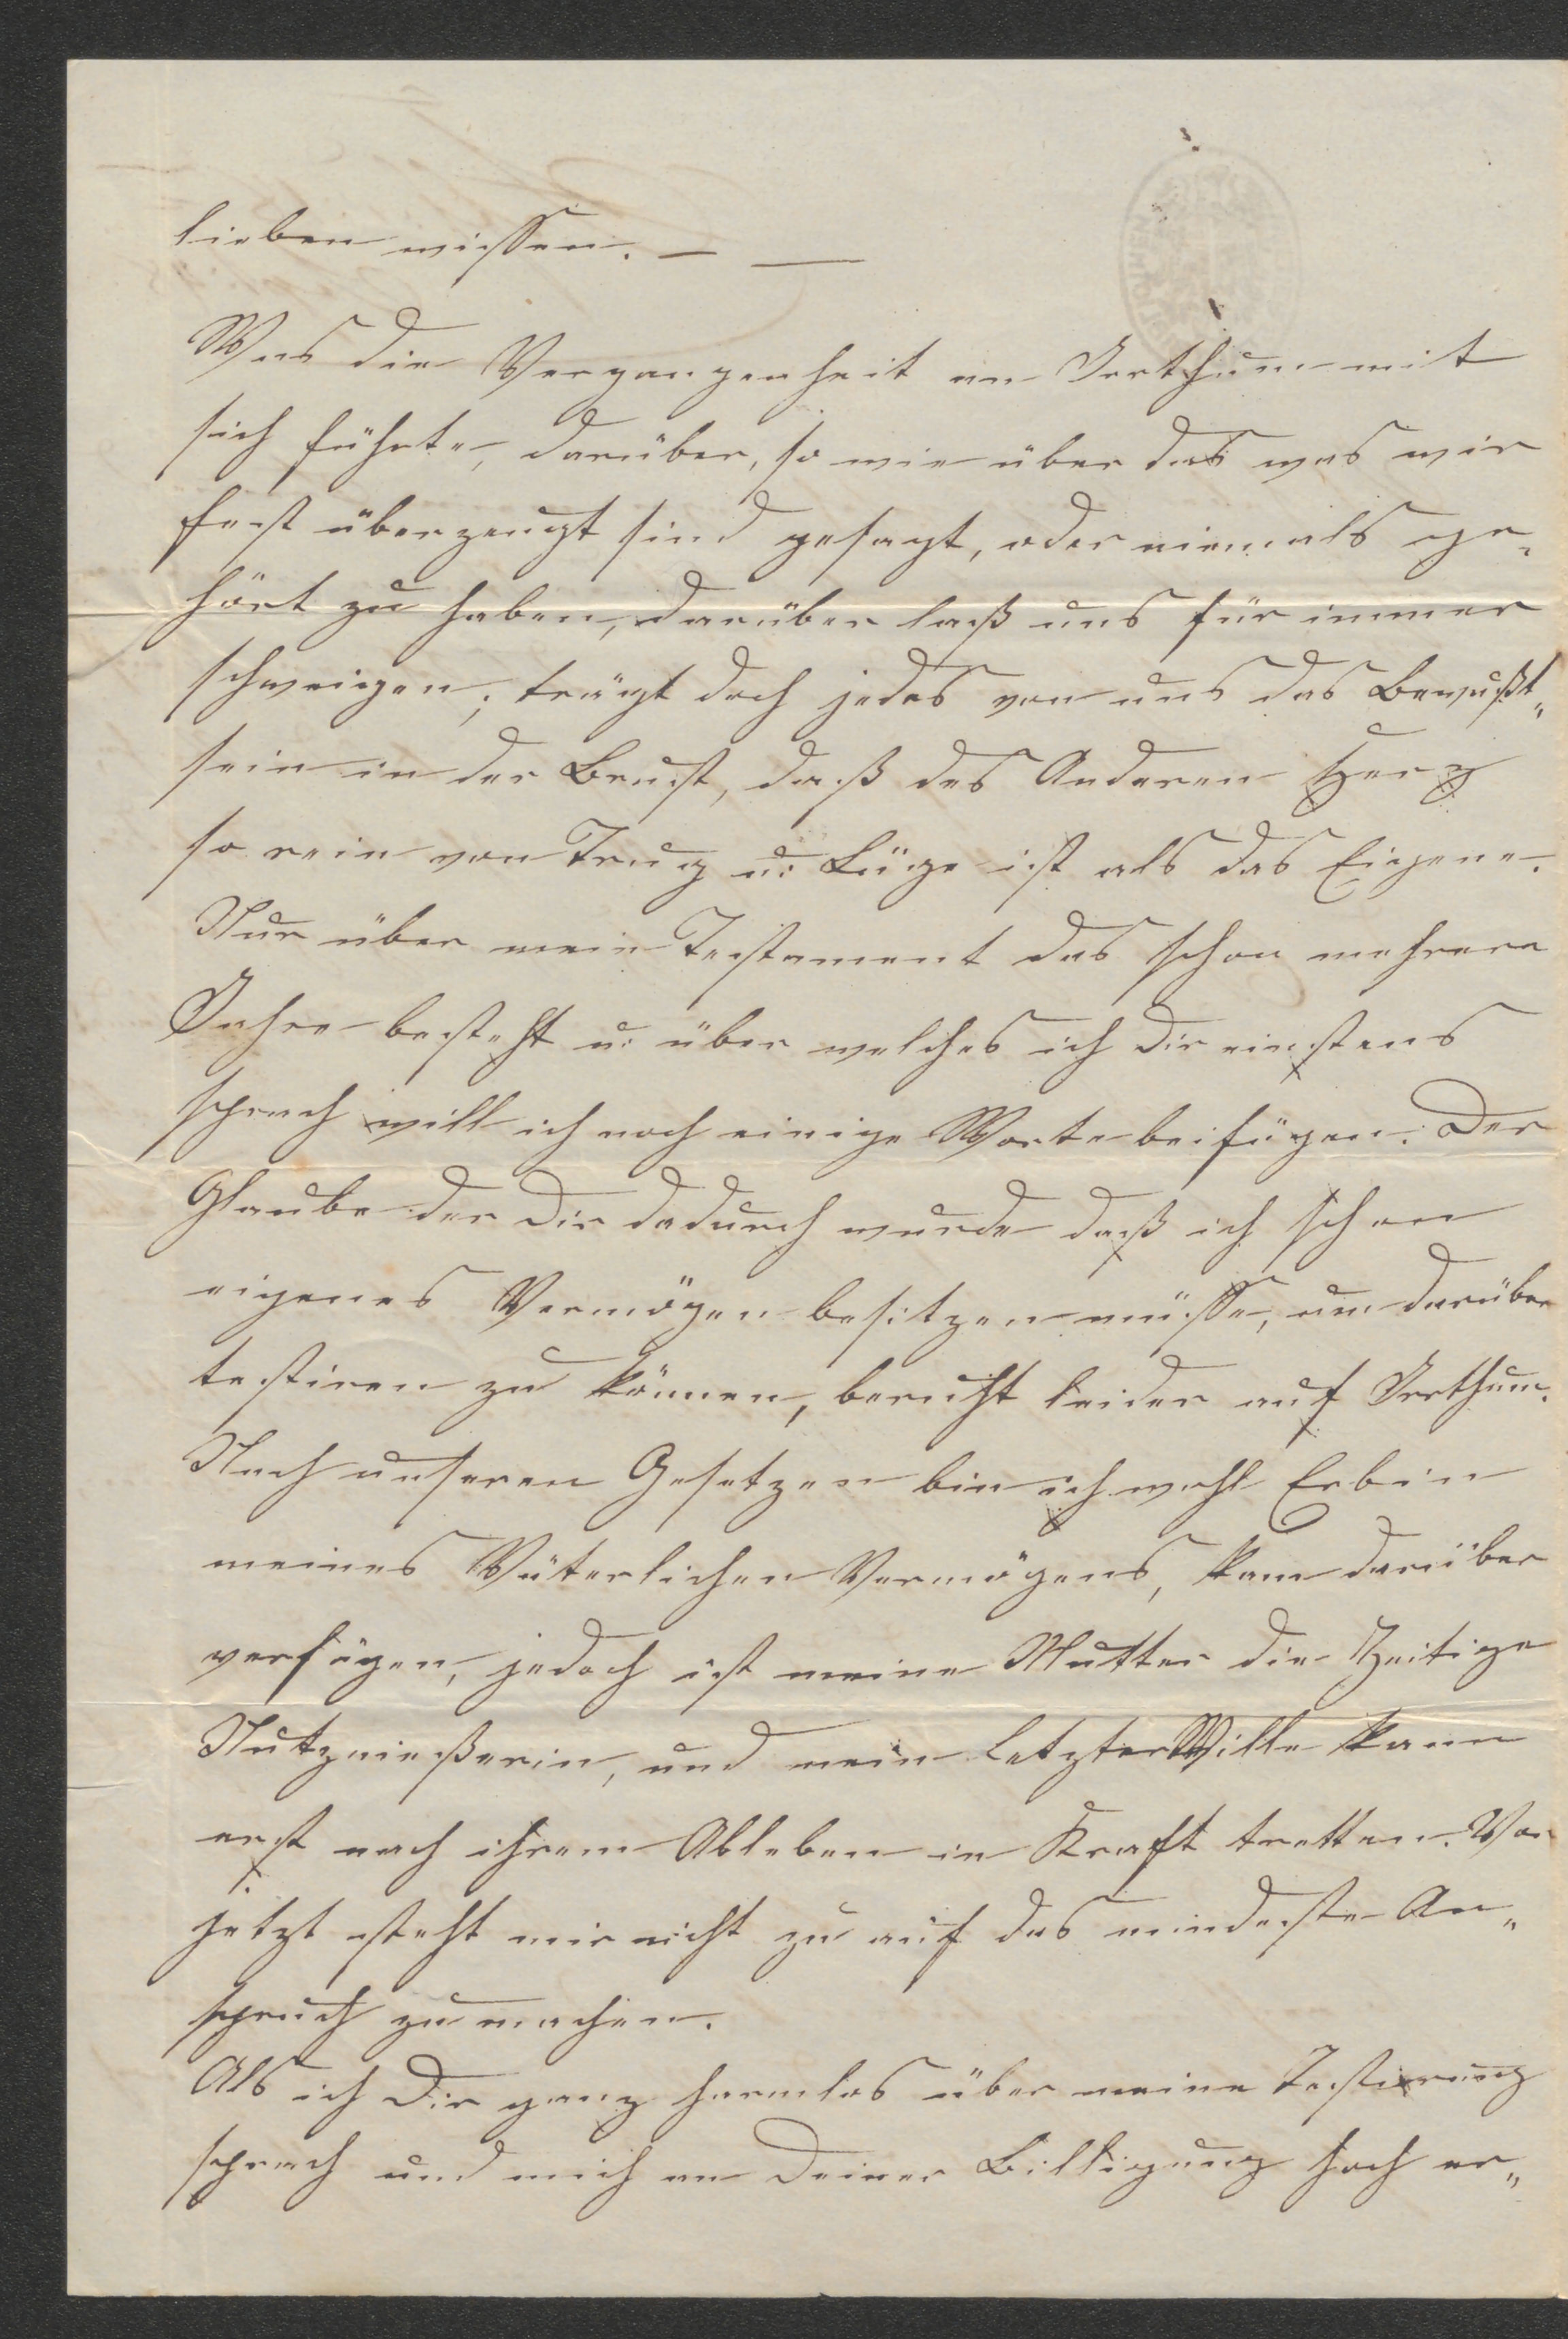 lieben wissen. — —
Was die Vergangenheit an Irrthum mit
sich führte, darüber, so wie über das was wir
fest überzeugt sind gesagt, oder niemals ge„
hört zu haben, darüber laß uns für immer
schweigen; trägt doch jedes von uns das Bewußt„
sein in der Brust, daß des Anderen Herz
so rein von Trug u: Lüge ist als das Eigene.
Nur über mein Testament das schon mehrere
Jahre besteht u: über welches ich Dir einstens
sprach will ich noch einige Worte beifügen. Der
Glaube der Dir dadurch wurde daß ich schon
eigenes Vermögen besitzen müsse, um darüber
testiren zu können, beruht leider auf Irrthum.
Nach unseren Gesetzen bin ich wohl Erbin
meines Väterlichen Vermögens, kann darüber
verfügen, jedoch ist meine Mutter die Zeitige
Nutznießerin, und mein letzter Wille kann
erst nach ihrem Ableben in Kraft tretten. Vor
jetzt steht mir nicht zu auf das mindeste An„
spruch zu machen.
Als ich Dir ganz harmlos über meine Testirung
sprach und mich an Deiner Billigung hoch er„